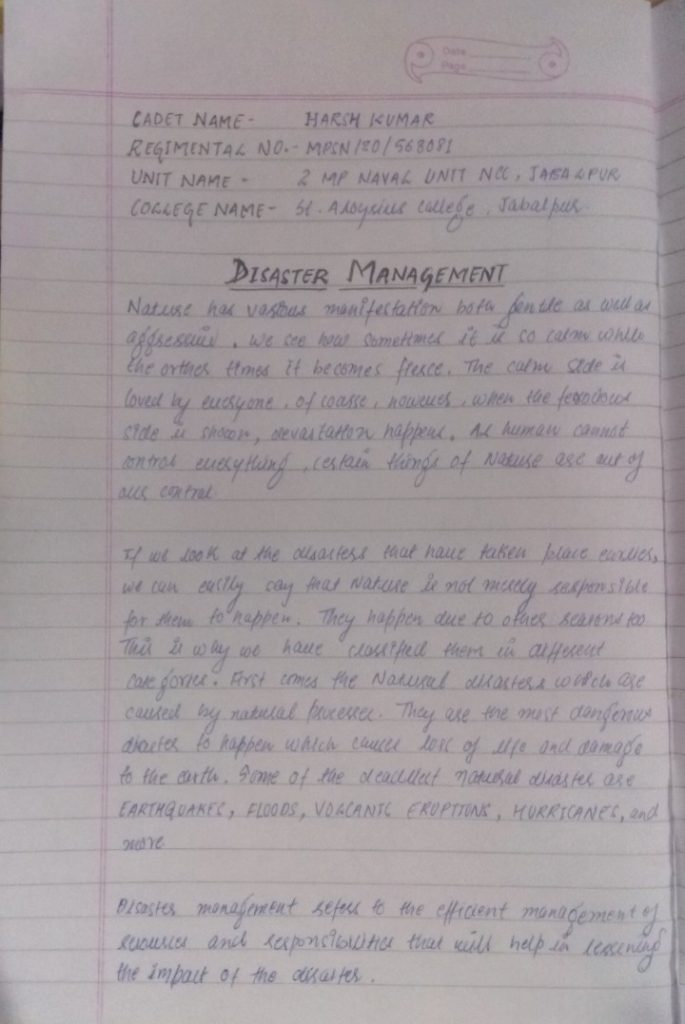 Date
Page
CADET NAME - HARSH KUMAR
REGIMENTAL NO. - MPSN/20/568081
UNIT NAME - 2 MP NAVAL UNIT NCC, JABALPUR
COLLEGE NAME - St. Aloysius College, Jabalpur.
DISASTER MANAGEMENT
Nature has various manifestation both gentle as well as
aggressive. We see how sometimes it is so calm while
the orther times it becomes fierce. The calm side is
loved by everyone, of coasse, however, when the ferocious
side is shown, devastation happens. As human cannot
control everything, certain things of Nature are out of
our control.
If we look at the disasters that have taken place earlier,
we can easily say that Nature is not merely responsible
for them to happen. They happen due to other reasons too
This is why we have classified them in different
categories. First comes the Natural disasters which are
caused by natural processes. They are the most dangerous
disaster to happen which causes loss of life and damage
to the earth. Some of the deadliest natural disaster are
EARTHQUAKES, FLOODS, VOLCANIC ERUPTIONS, HURRICANES, and
more
Disaster management refers to the efficient management of
resources and responsibilities that will help in lessening
the impact of the disaster.